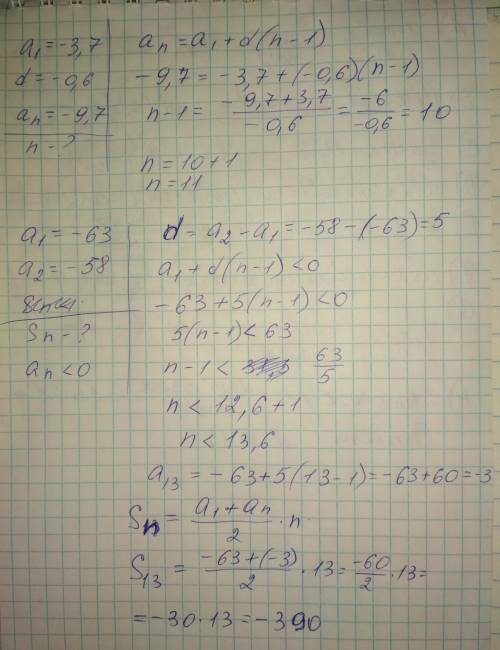 a₁ = -3,7
d = -0,6
aₙ = -9,7
n - ?
aₙ = a₁ + d(n-1)
-9,7 = -3,7 + (-0,6)(n-1)
n-1 = (-9,7+3,7)/(-0,6) = -6/-0,6 = 10
n = 10+1
n = 11
a₁ = -63
a₂ = -58
Sn - ?
aₙ < 0
d = a₂ - a₁ = -58 - (-63) = 5
a₁ + d(n-1) < 0
-63 + 5(n-1) < 0
5(n-1) < 63
n-1 < 63/5
n < 12,6+1
n < 13,6
a₁₃ = -63+5(13-1) = -63+60 = -3
Sn = (a₁+aₙ)/2 · n
S₁₃ = (-63+(-3))/2 · 13 = -60/2 · 13 =
= -30·13 = -390